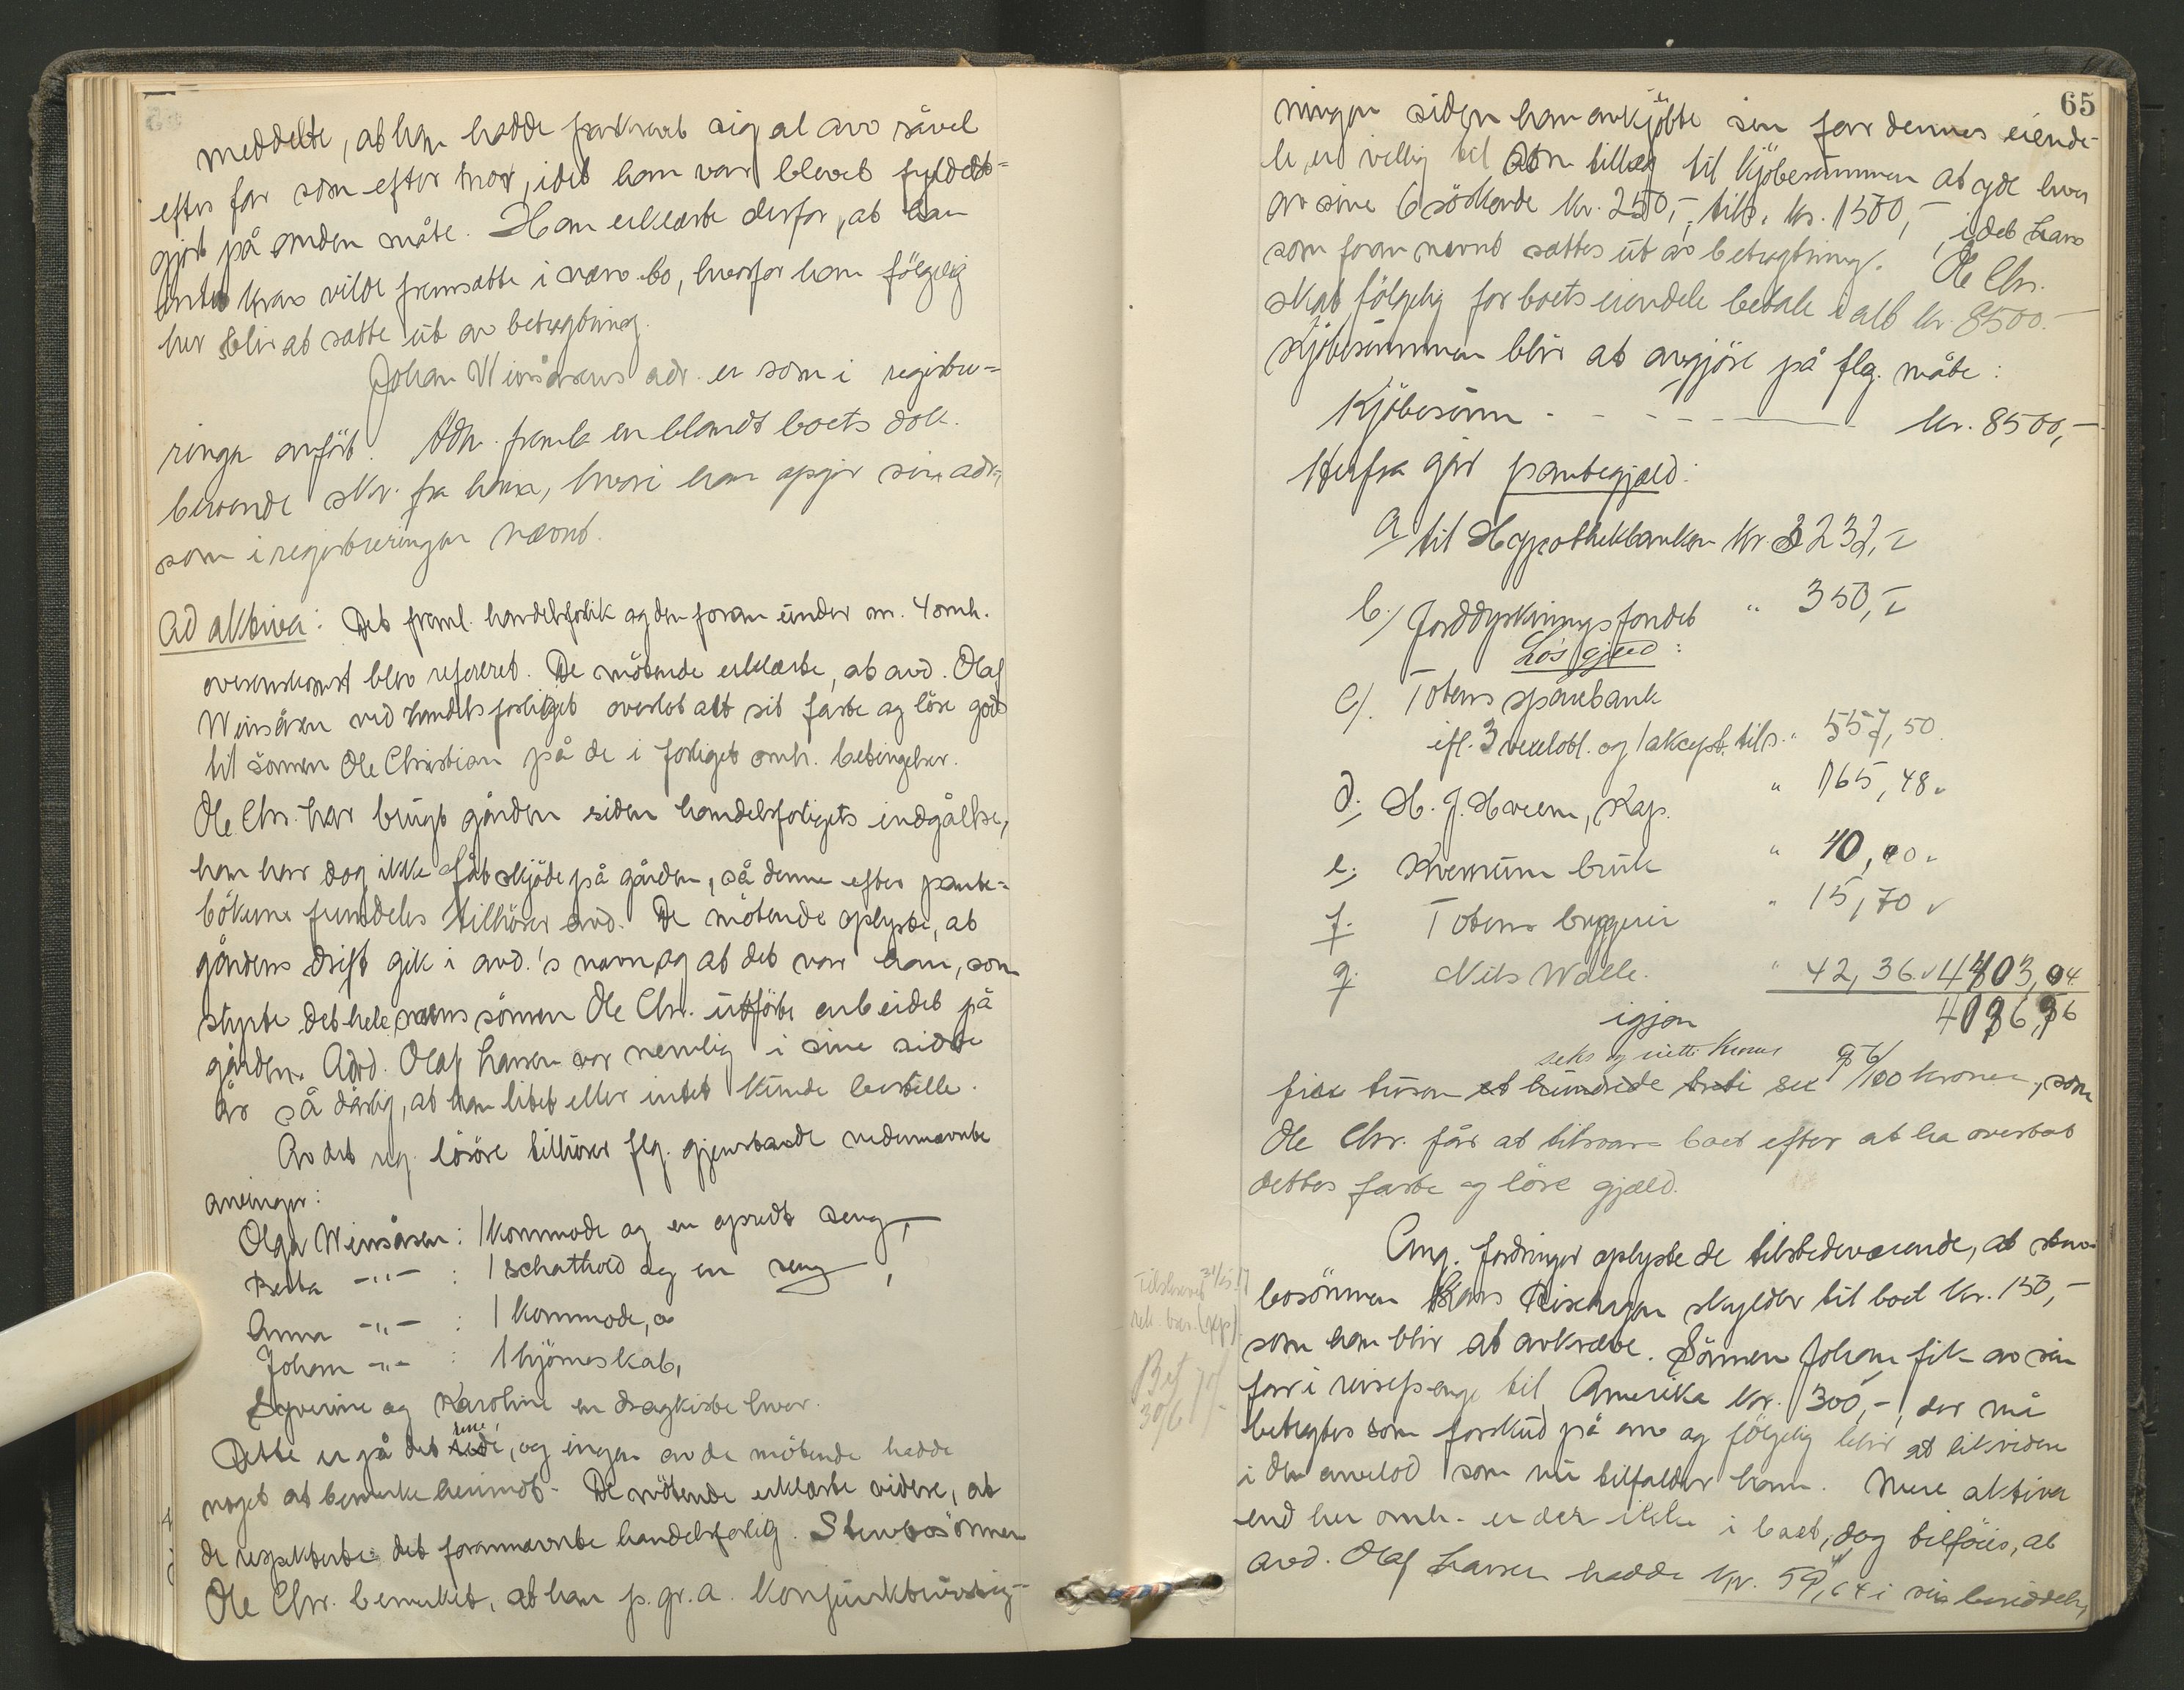 meddelte, at han hadde frakrevet sig al arv såvel
efter far som efter mor, idet han var blevet fyldest=
gjort på anden måte. Han erklærte derfor, at han
intet krav vilde fremsætte i nærv. bo, hvorfor han følgelig
her blir at sætte ut av betragtning.
Johan Weinsåsens adr. er som i registre=
ringen anført. Adv. fremla en blandt boets dok.
beroende skr. fra ham, hvori han opgir sin adr.
som i registreringen nævnt.
Ad aktiva: Det freml. handelsforlik og den foran under nr. 4 omh.
overenskomst blev refereret. De møtende erklærte, at avd. Olaf
Weinsåsen ved handelsforliget overlot alt sit faste og løse gods
til sønnen Ole Christian på de i forliget omh. betingelser.
Ole Chr. har brugt gården siden handelsforligets indgåelse,
han har dog ikke fåt skjøde på gården, så denne efter pante=
bøkerne fremdeles tilhører avd. De møtende oplyste, at
gårdens drift gik i avd.'s navn og at det var ham, som
styrte det hele, mens sønnen Ole Chr. utførte arbeidet på
gården. Avd. Olaf Larsen var nemlig i sine sidste
år så dårlig, at han litet eller intet kunde bestille.
Av det reg. løsøre tilhører flg. gjenstande nedennævnte
arvinger:
Olga Weinsåsen: 1 kommode og en opredt seng,
Berta -"- : 1 schathold og en seng,
Anna -"- : 1 kommode, og
Johan -"- : 1 hjørneskab,
Syverine og Karoline en dragkiste hver.
rene
Dette er på det rede, og ingen av de møtende hadde
noget at bemerke herimot. De møtende erklærte videre, at
de respekterte det forannævnte handelsforlig. Stervbosønnen
Ole Chr. bemerket, at han p. gr. a. konjunkturstig-
65
ningen siden han avkjøbte sin far dennes eiende-
le, er villig til som tillæg til kjøbesummen at yde hver
av sine 6 søskende kr. 250,-, tils. kr. 1500,-, idet Lars
som foran nævnt sættes ut av betragtning. Ole Chr.
skal følgelig for boets eiendele betale ialt kr. 8500.-
Kjøbesummen blir at avgjøre på flg. måte:
Kjøbesum - - - - - kr. 8500,-
Herfra går pantegjæld:
a/ til Hypothekbanken kr. 3232,-
b/ Jorddyrkningsfondet " 350,-
Løs gjæld:
c/. Totens sparebank
ifl. 3 vexelobl. og 1 akcept. tils. " 557,50
d. H. J. Hveem, Kap. " 165,48
e. Kvemum bruk " 40,00
f. Totens bryggeri " 15,70
g. Nils Walle. " 42,36 4403,04
igjen 4096,96
seks og nitti kroner
fire tusen et hundrede treti sex 96/100 kroner, som
Ole Chr. får at tilsvare boet efter at ha overtat
dettes faste og løse gjæld.
Ang. fordringer oplyste de tilstedeværende, at sterv-
bosønnen Hans skylder til boet kr. 150,-
som han blir at avkræve. Sønnen Johan fik av sin
far i reisepenge til Amerika kr. 300,-, der må
betragtes som forskud på arv og følgelig blir at likvidere
i den arvelod som nu tilfalder ham. Mere aktiva
end her omh. er der ikke i boet, dog tilføies, at
avd. Olaf Larsen hadde kr. 59,64 i
Tilskrevet 31/5.17
rek. brev.
Bet
30/6